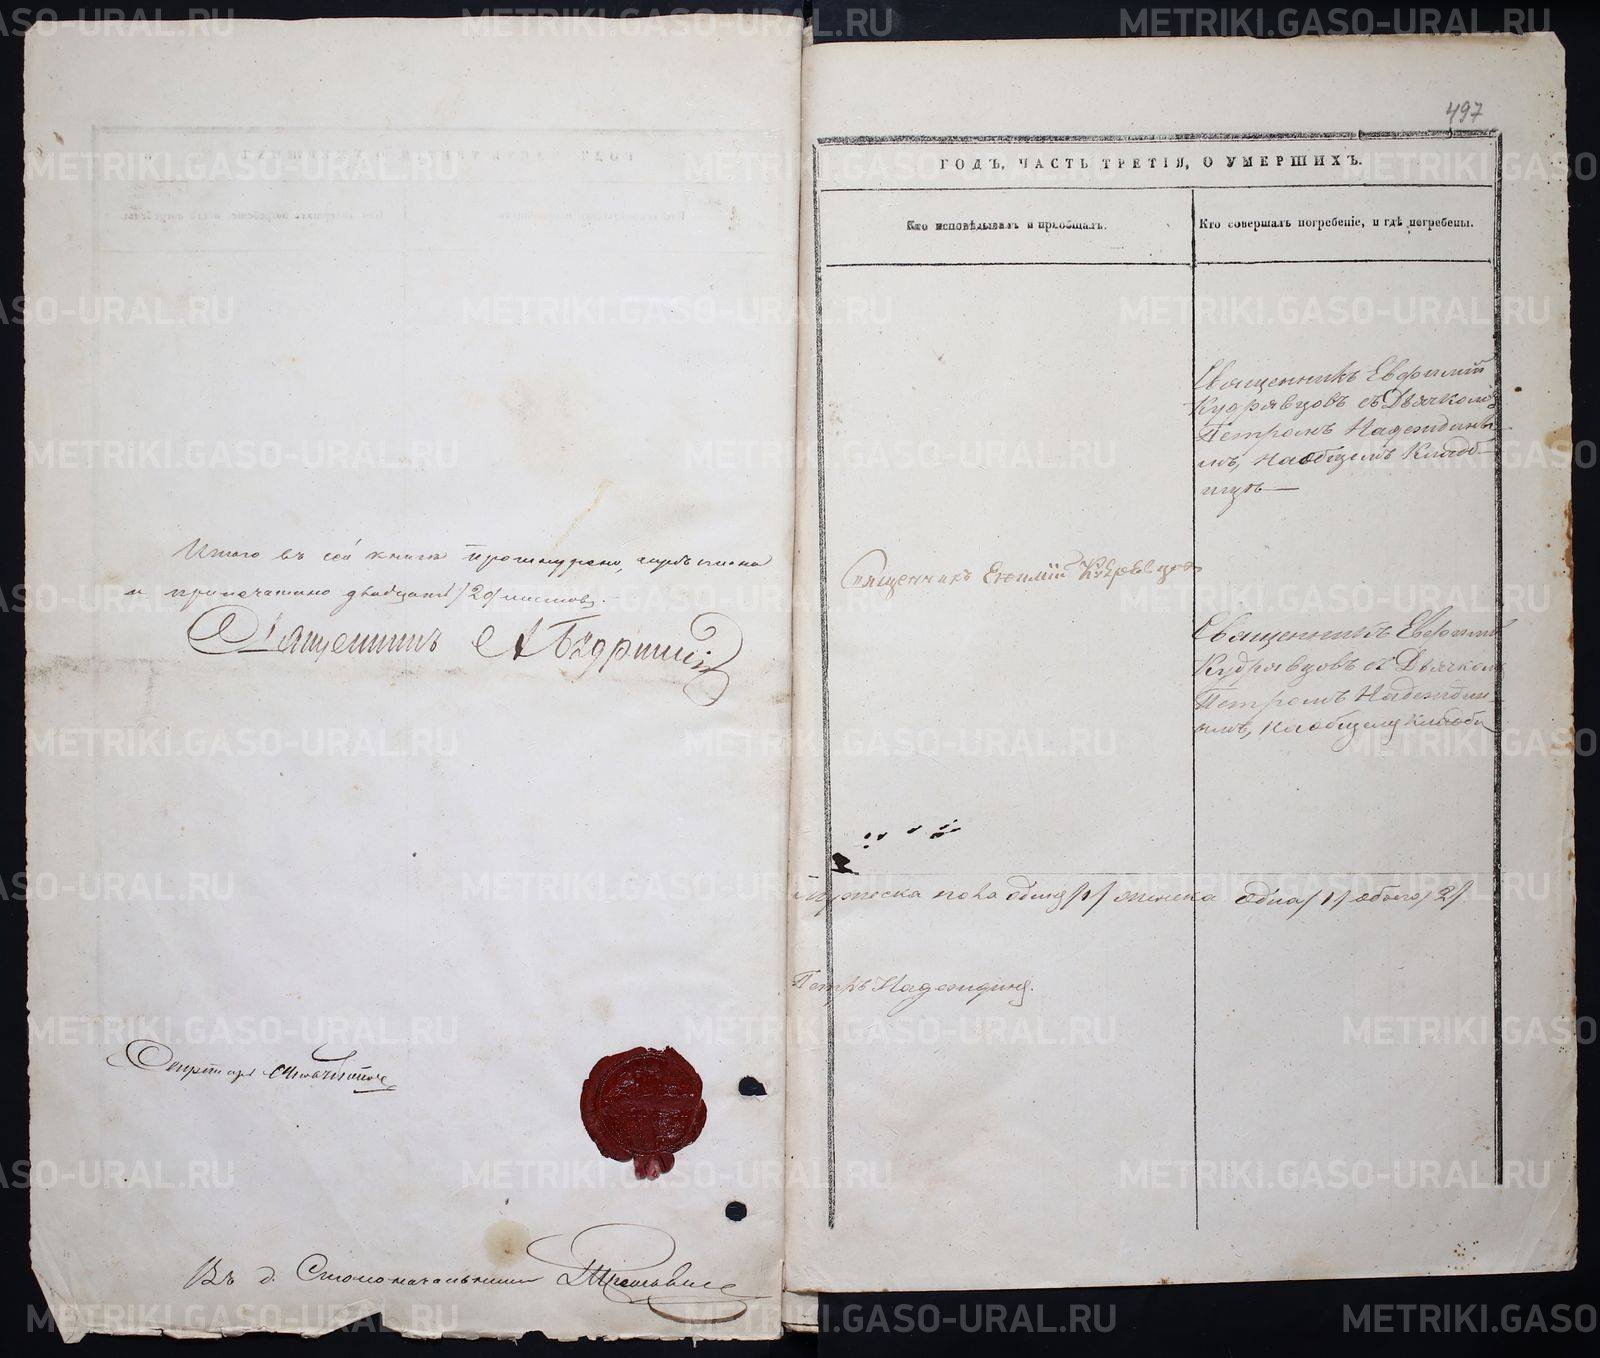 Итого въ сей книгѣ прошнуровано, скрѣплено
и припечатано двадцать /20/ листовъ.
Священникъ А
Секретарь
Въ д. Столоначальника
497
ГОДЪ, ЧАСТЬ ТРЕТІЯ, О УМЕРШИХЪ.
Кто исповѣдывалъ и пріобщалъ.
Кто совершалъ погребеніе, и гдѣ погребены.
Священникъ Евфимій
Кудрявцовъ съ Дьячкомъ
Петромъ Надеждины-
мъ, на общемъ Кладб-
ищѣ
Священникъ Евфимій Кудрявцовъ
Священникъ Евфимій
Кудрявцовъ съ Дьячкомъ
Петромъ Надежды-
нымъ, на общему Кладби
Мужеска пола одинъ /1/ женска одна /1/ обоего /2/
Петръ Надеждинъ.
METRIKI.GASO-URAL.RU